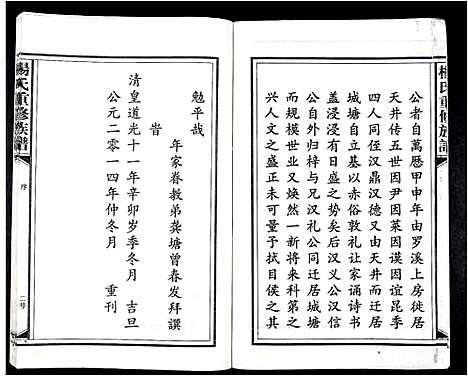 楊氏重修族譜
公者自萬曆甲申年由罗溪上房徙居
天井传五世因尹因菜因谟因谊昆季
四人同侄汉鼎汉德又由天井而迁居
城塘自立基以衣冠教礼让家诵诗书
盖浸浸有日盛之势矣后汉义公汉信
公自外归梓与兄汉礼公同迁居城塘
而规模世业又焕然一新将来科第之
兴人文之盛正未可量予拭目俟之其
勉乎哉
年家眷教弟龚塘曾春发拜譔
旹
清皇道光十一年辛卯岁季冬月 吉旦
公元二零一四年仲冬月 重刊
楊氏重修族譜
序
二号